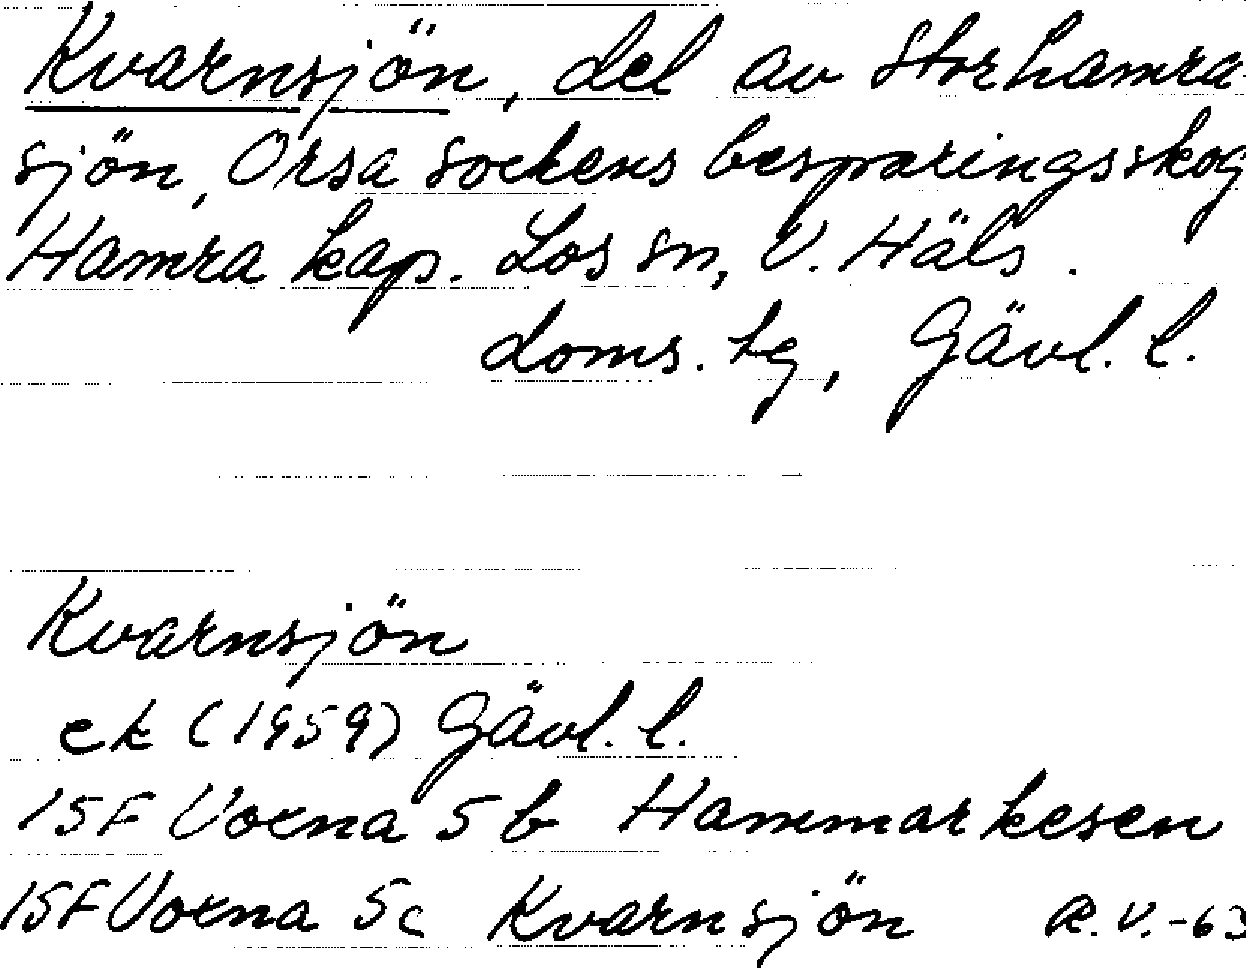 Kvarnsjön, del av Storhamra-
sjön, Orsa sockens besparingsskog
Hamra kap. Los sn, V. Häls.
doms. tg, Gävl. l.
Kvarnsjön
ek (1959) Gävl. l.
15F Voxna 5b Hammarkesen
15F Voxna 5c Kvarnsjön R.V.-63